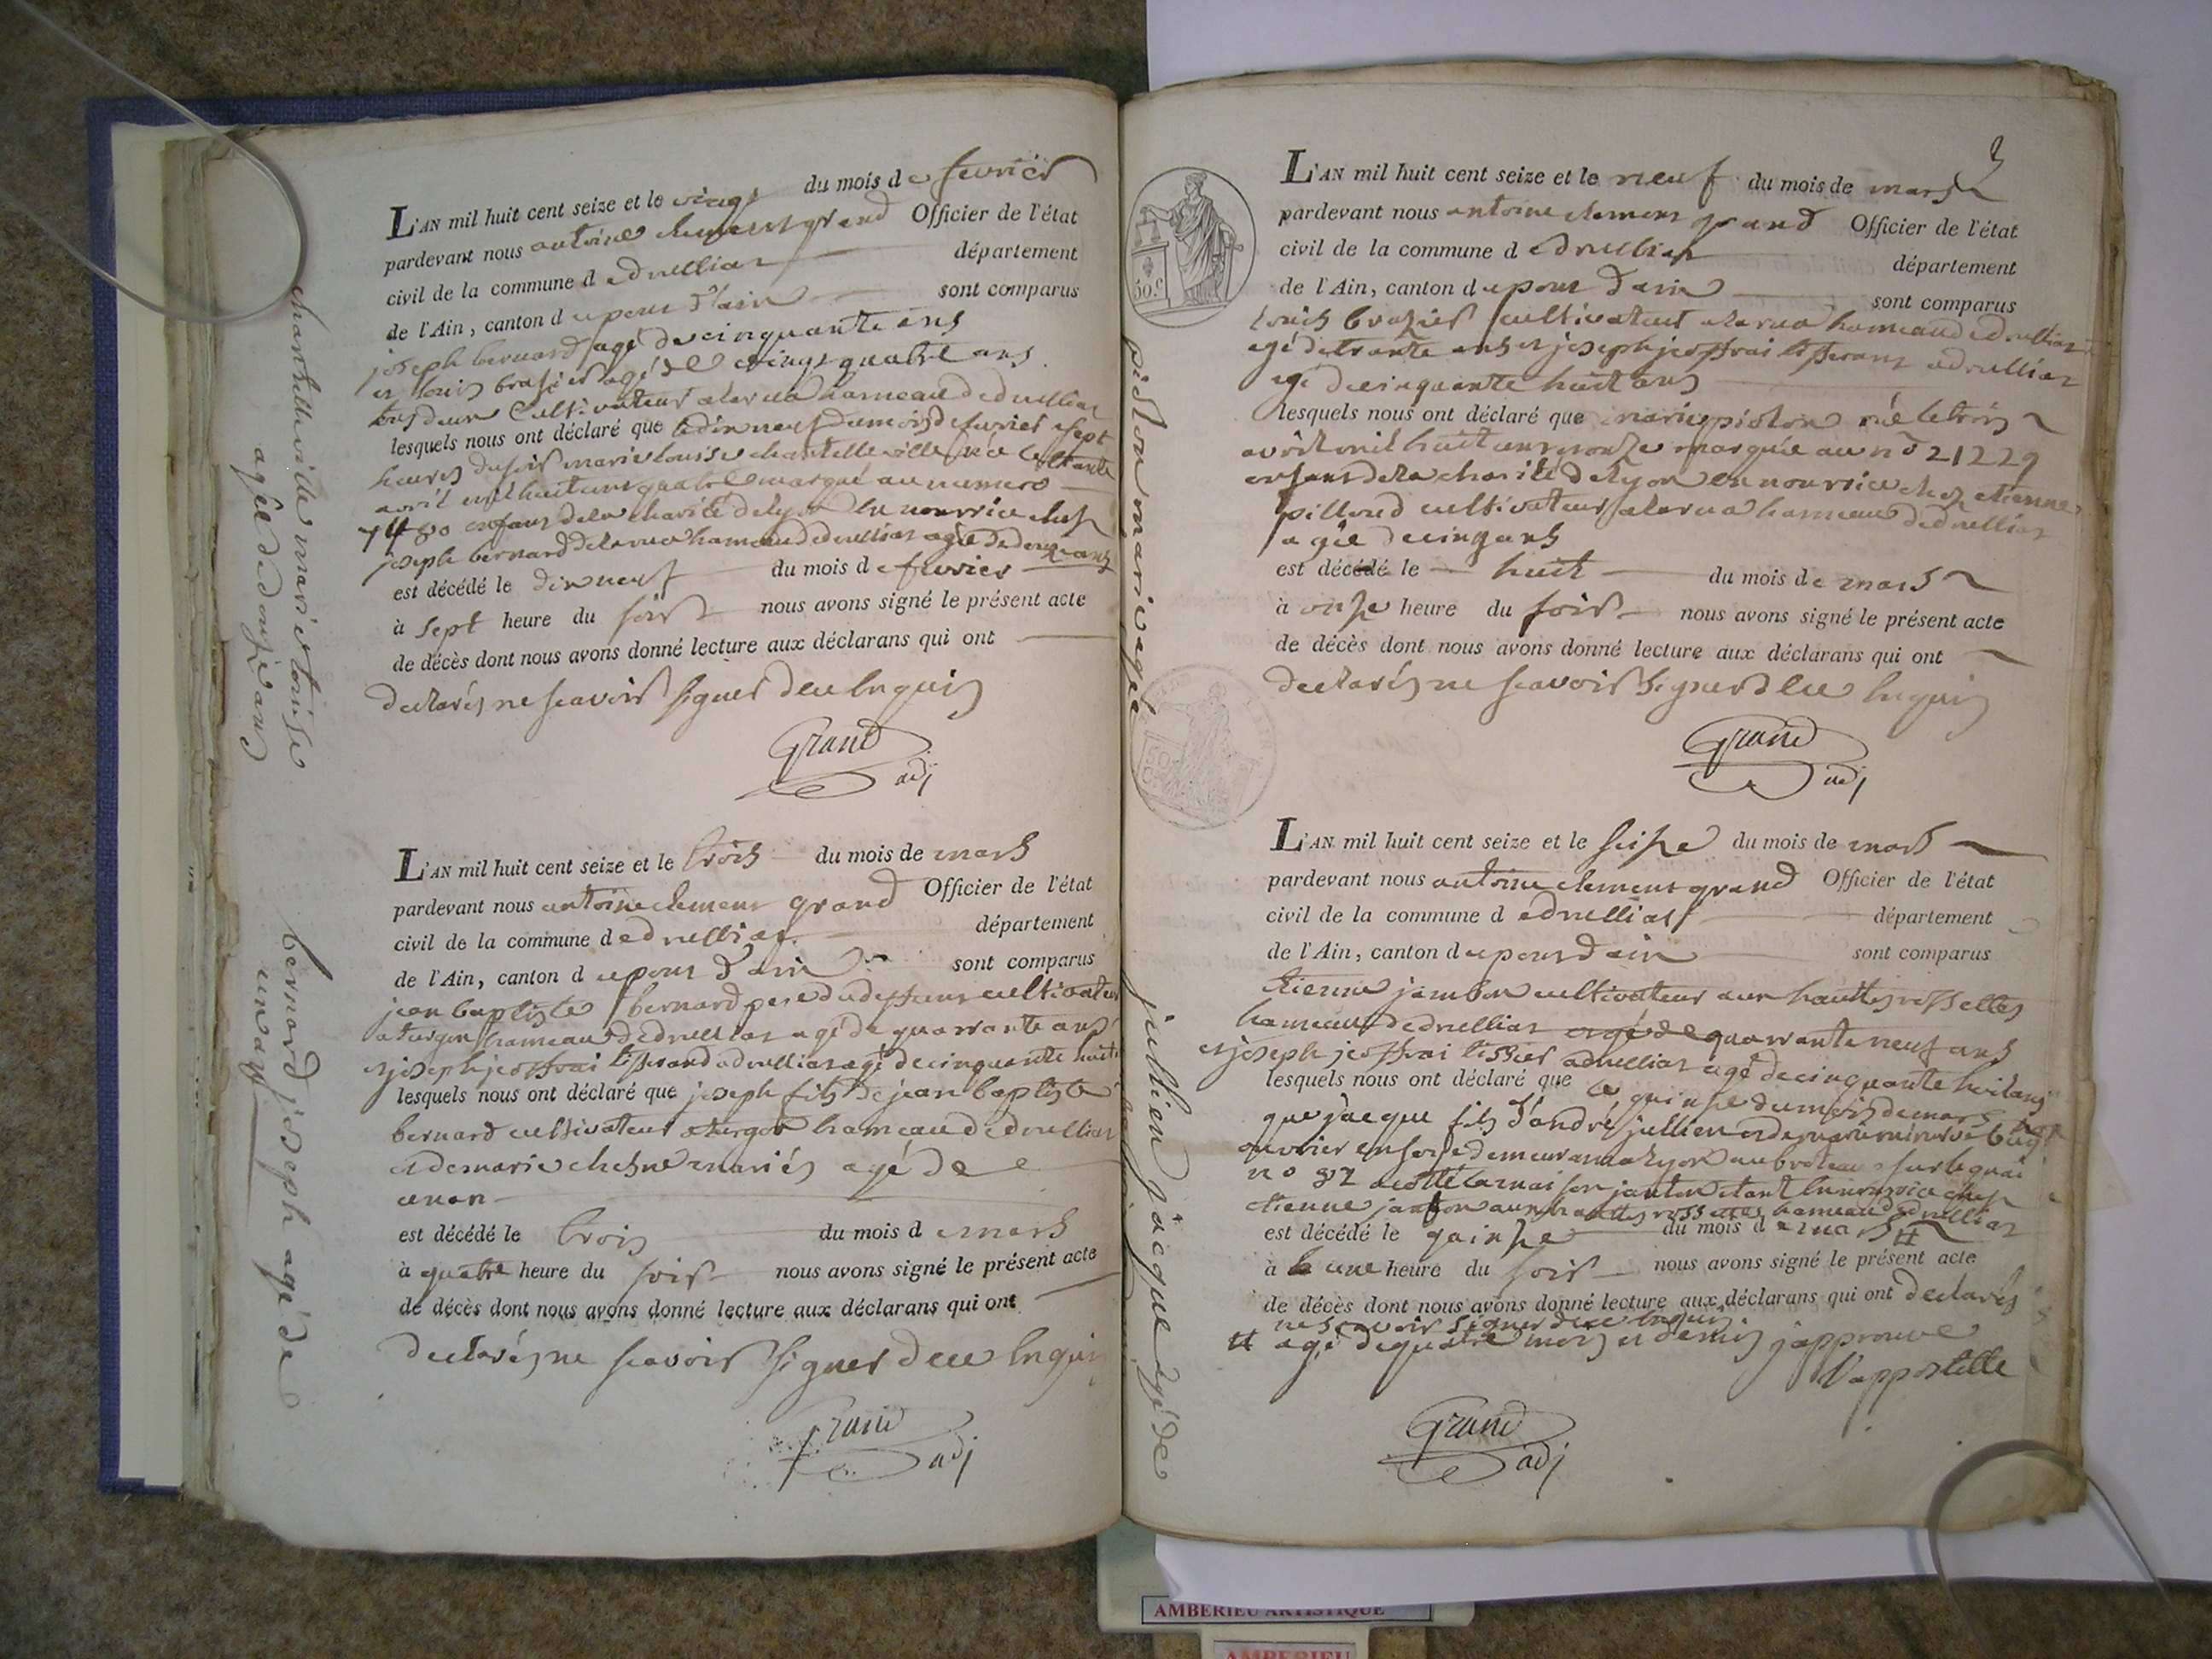 chantelleville marie Louise
agée de onze ans
L'AN mil huit cent seize et le vingt du mois de fevrier
pardevant nous antoine clement grand Officier de l'état
civil de la commune d edruilliat département
de l'Ain, canton d upont d'ain sont comparus
joseph bernard agé de cinquante ans
et louis brasier agé de vingt quatre ans
tous deux Cultivateur alarua hameau dedruilliat
lesquels nous ont déclaré que le dix neuf du mois de fevrier a sept
heures du soir marie louise chantelleville née le
avril mil huit cent quatre marqué au numero
enfant de la charité de lyon en nourrice chez
joseph bernard delarua hameau dedruilliat agée de
est décédé le dix neuf du mois d e fevrier
à sept heure du soir nous avons signé le présent acte
de décès dont nous avons donné lecture aux déclarans qui ont
declarés ne scavoir signer de ce Enquis
Grand
adj
bernard joseph agé de
un an
L'AN mil huit cent seize et le trois du mois de mars
pardevant nous antoine clement grand Officier de l'état
civil de la commune d edruilliat département
de l'Ain, canton d upont d'ain sont comparus
jean baptiste bernard pere du deffunt cultivateur
a turgon hameau dedruilliat agé de quarrante ans
et joseph jeoffrai tisserand a druilliat agé de cinquante huit
lesquels nous ont déclaré que joseph fils de jean baptiste
bernard cultivateur a turgon hameau dedruilliat
et de marie chesne mariés agé de
un an
est décédé le trois du mois d e mars
à quatre heure du soir nous avons signé le présent acte
de décès dont nous avons donné lecture aux déclarans qui ont
declarés ne scavoir signer de ce Enquis
Grand
adj
3
50.c
piston marie agée
L'AN mil huit cent seize et le neuf du mois de mars
pardevant nous antoine clement grand Officier de l'état
civil de la commune d edruilliat département
de l'Ain, canton d upont d'ain sont comparus
Louis brasier cultivateur alarua hameau dedruilliat
agé de trante ans et joseph jeoffrai tisserant a druilliat
agé de cinquante huit ans
lesquels nous ont déclaré que marie piston née le trois
avôit mil huit cent onze marquée au no 21229
enfant de la charité de lyon en nourrice chez etienne
pilloud cultivateur alarua hameau dedruilliat
agée de cinq ans
est décédé le huit du mois de mars
à onze heure du soir nous avons signé le présent acte
de décès dont nous avons donné lecture aux déclarans qui ont
declarés ne scavoir signer de ce Enquis
Grand
adj
jullien jacque agé de
L'AN mil huit cent seize et le seize du mois de mars
pardevant nous antoine clement grand Officier de l'état
civil de la commune d edruilliat département
de l'Ain, canton d upont d ain sont comparus
Etienne jambon cultivateur aux hauttes rosselles
hameau dedruilliat agé de quarrante neuf ans
et joseph jeoffrai tissier a druilliat agé de cinquante huit ans
lesquels nous ont déclaré que le quinze du mois de mars
que jacque fils d'andré jullien et de
ouvrier en soie demeurant a lyon au broteau sur le quai
no 32 etant en nourrice chez
etienne aux hauttes rosselles hameau dedruilliat
est décédé le quinze du mois d e mars #
à une heure du soir nous avons signé le présent acte
de décès dont nous avons donné lecture aux déclarans qui ont declarés
ne scavoir signer de ce Enquis
# agé de quatre mois et demis japprouve
l'appostille
Grand
adj
AMBERIEU ARTISTIQUE
AMBERIEU